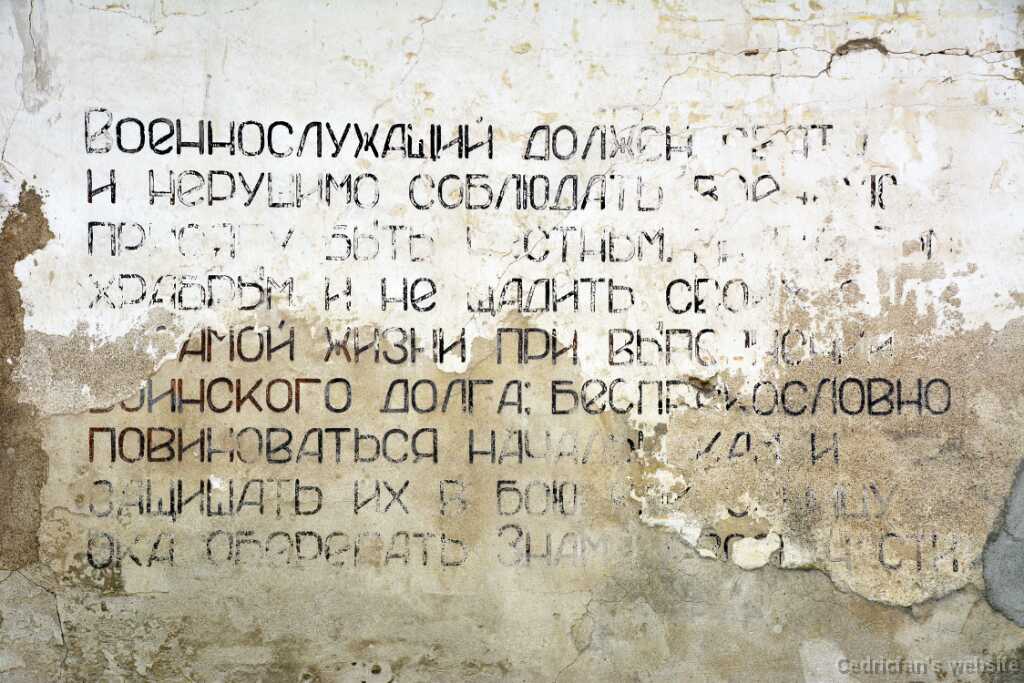 Военнослужащий должен свято
и нерушимо соблюдать военную
присягу быть честным,
храбрым и не щадить своих
самой жизни при выполнении
воинского долга; беспрекословно
повиноваться начальникам и
защищать их в бою, как зеницу
ока оберегать Знамя своей части
Cedricfan's website